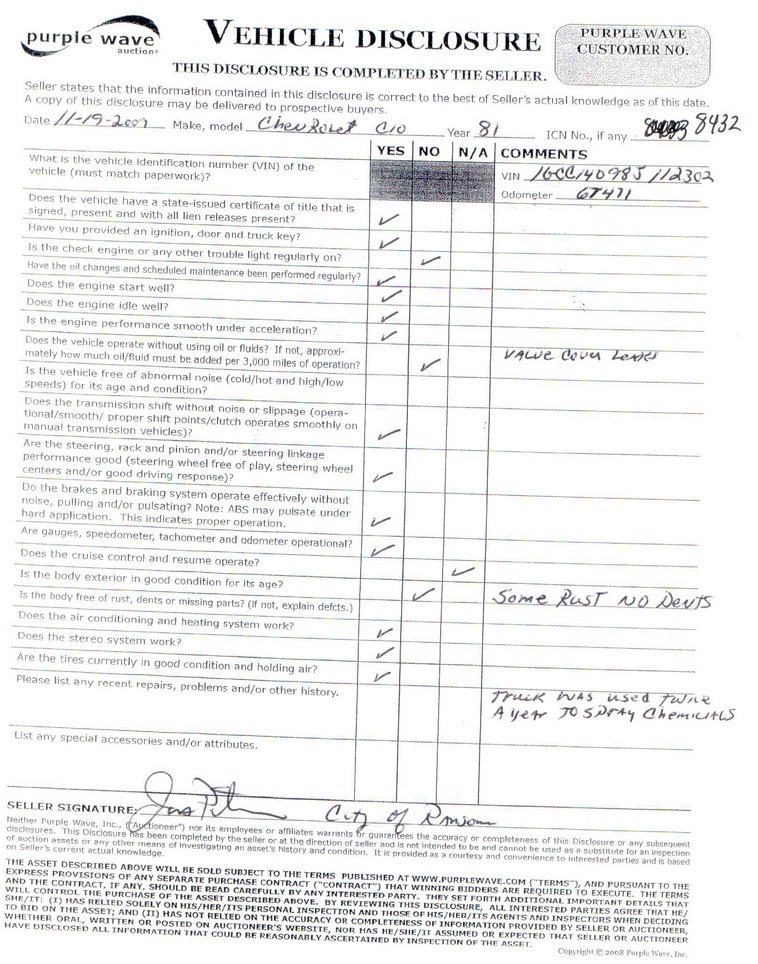 purple wave
auction®
VEHICLE DISCLOSURE
PURPLE WAVE
CUSTOMER NO.
THIS DISCLOSURE IS COMPLETED BY THE SELLER.
Seller states that the information contained in this disclosure is correct to the best of Seller's actual knowledge as of this date.
A copy of this disclosure may be delivered to prospective buyers.
Date 11-19-2009 Make, model Chevrolet C10 Year 81 ICN No., if any 8432
YES NO N/A COMMENTS
What is the vehicle identification number (VIN) of the
vehicle (must match paperwork)?
VIN 1GCC140985J112302
Odometer 67471
Does the vehicle have a state-issued certificate of title that is
signed, present and with all lien releases present? ✓
Have you provided an ignition, door and truck key? ✓
Is the check engine or any other trouble light regularly on? ✓
Have the oil changes and scheduled maintenance been performed regularly? ✓
Does the engine start well? ✓
Does the engine idle well? ✓
Is the engine performance smooth under acceleration? ✓
Does the vehicle operate without using oil or fluids? If not, approxi-
mately how much oil/fluid must be added per 3,000 miles of operation? ✓
VALUE COVER LEAKS
Is the vehicle free of abnormal noise (cold/hot and high/low
speeds) for its age and condition?
Does the transmission shift without noise or slippage (opera-
tional/smooth/ proper shift points/clutch operates smoothly on
manual transmission vehicles)? ✓
Are the steering, rack and pinion and/or steering linkage
performance good (steering wheel free of play, steering wheel
centers and/or good driving response)? ✓
Do the brakes and braking system operate effectively without
noise, pulling and/or pulsating? Note: ABS may pulsate under
hard application. This indicates proper operation. ✓
Are gauges, speedometer, tachometer and odometer operational? ✓
Does the cruise control and resume operate? ✓
Is the body exterior in good condition for its age?
Is the body free of rust, dents or missing parts? (If not, explain defcts.) ✓ Some Rust NO Dents
Does the air conditioning and heating system work? ✓
Does the stereo system work? ✓
Are the tires currently in good condition and holding air? ✓
Please list any recent repairs, problems and/or other history.
Truck WAS used twice
A year TO SPRAY Chemicials
List any special accessories and/or attributes.
SELLER SIGNATURE: City of Ransom
Neither Purple Wave, Inc., ("Auctioneer") nor its employees or affiliates warrants or guarantees the accuracy or completeness of this Disclosure or any subsequent
disclosures. This Disclosure has been completed by the seller or at the direction of seller and is not intended to be and cannot be used as a substitute for an inspection
of auction assets or any other means of investigating an asset's history and condition. It is provided as a courtesy and convenience to interested parties and is based
on Seller's current actual knowledge.
THE ASSET DESCRIBED ABOVE WILL BE SOLD SUBJECT TO THE TERMS PUBLISHED AT WWW.PURPLEWAVE.COM ("TERMS"), AND PURSUANT TO THE
EXPRESS PROVISIONS OF ANY SEPARATE PURCHASE CONTRACT ("CONTRACT") THAT WINNING BIDDERS ARE REQUIRED TO EXECUTE. THE TERMS
AND THE CONTRACT, IF ANY, SHOULD BE READ CAREFULLY BY ANY INTERESTED PARTY. THEY SET FORTH ADDITIONAL IMPORTANT DETAILS THAT
WILL CONTROL THE PURCHASE OF THE ASSET DESCRIBED ABOVE. BY REVIEWING THIS DISCLOSURE, ALL INTERESTED PARTIES AGREE THAT HE/
SHE/IT: (I) HAS RELIED SOLELY ON HIS/HER/ITS PERSONAL INSPECTION AND THOSE OF HIS/HER/ITS AGENTS AND INSPECTORS WHEN DECIDING
TO BID ON THE ASSET; AND (II) HAS NOT RELIED ON THE ACCURACY OR COMPLETENESS OF INFORMATION PROVIDED BY SELLER OR AUCTIONEER,
WHETHER ORAL, WRITTEN OR POSTED ON AUCTIONEER'S WEBSITE, NOR HAS HE/SHE/IT ASSUMED OR EXPECTED THAT SELLER OR AUCTIONEER
HAVE DISCLOSED ALL INFORMATION THAT COULD BE REASONABLY ASCERTAINED BY INSPECTION OF THE ASSET.
Copyright © 2008 Purple Wave, Inc.